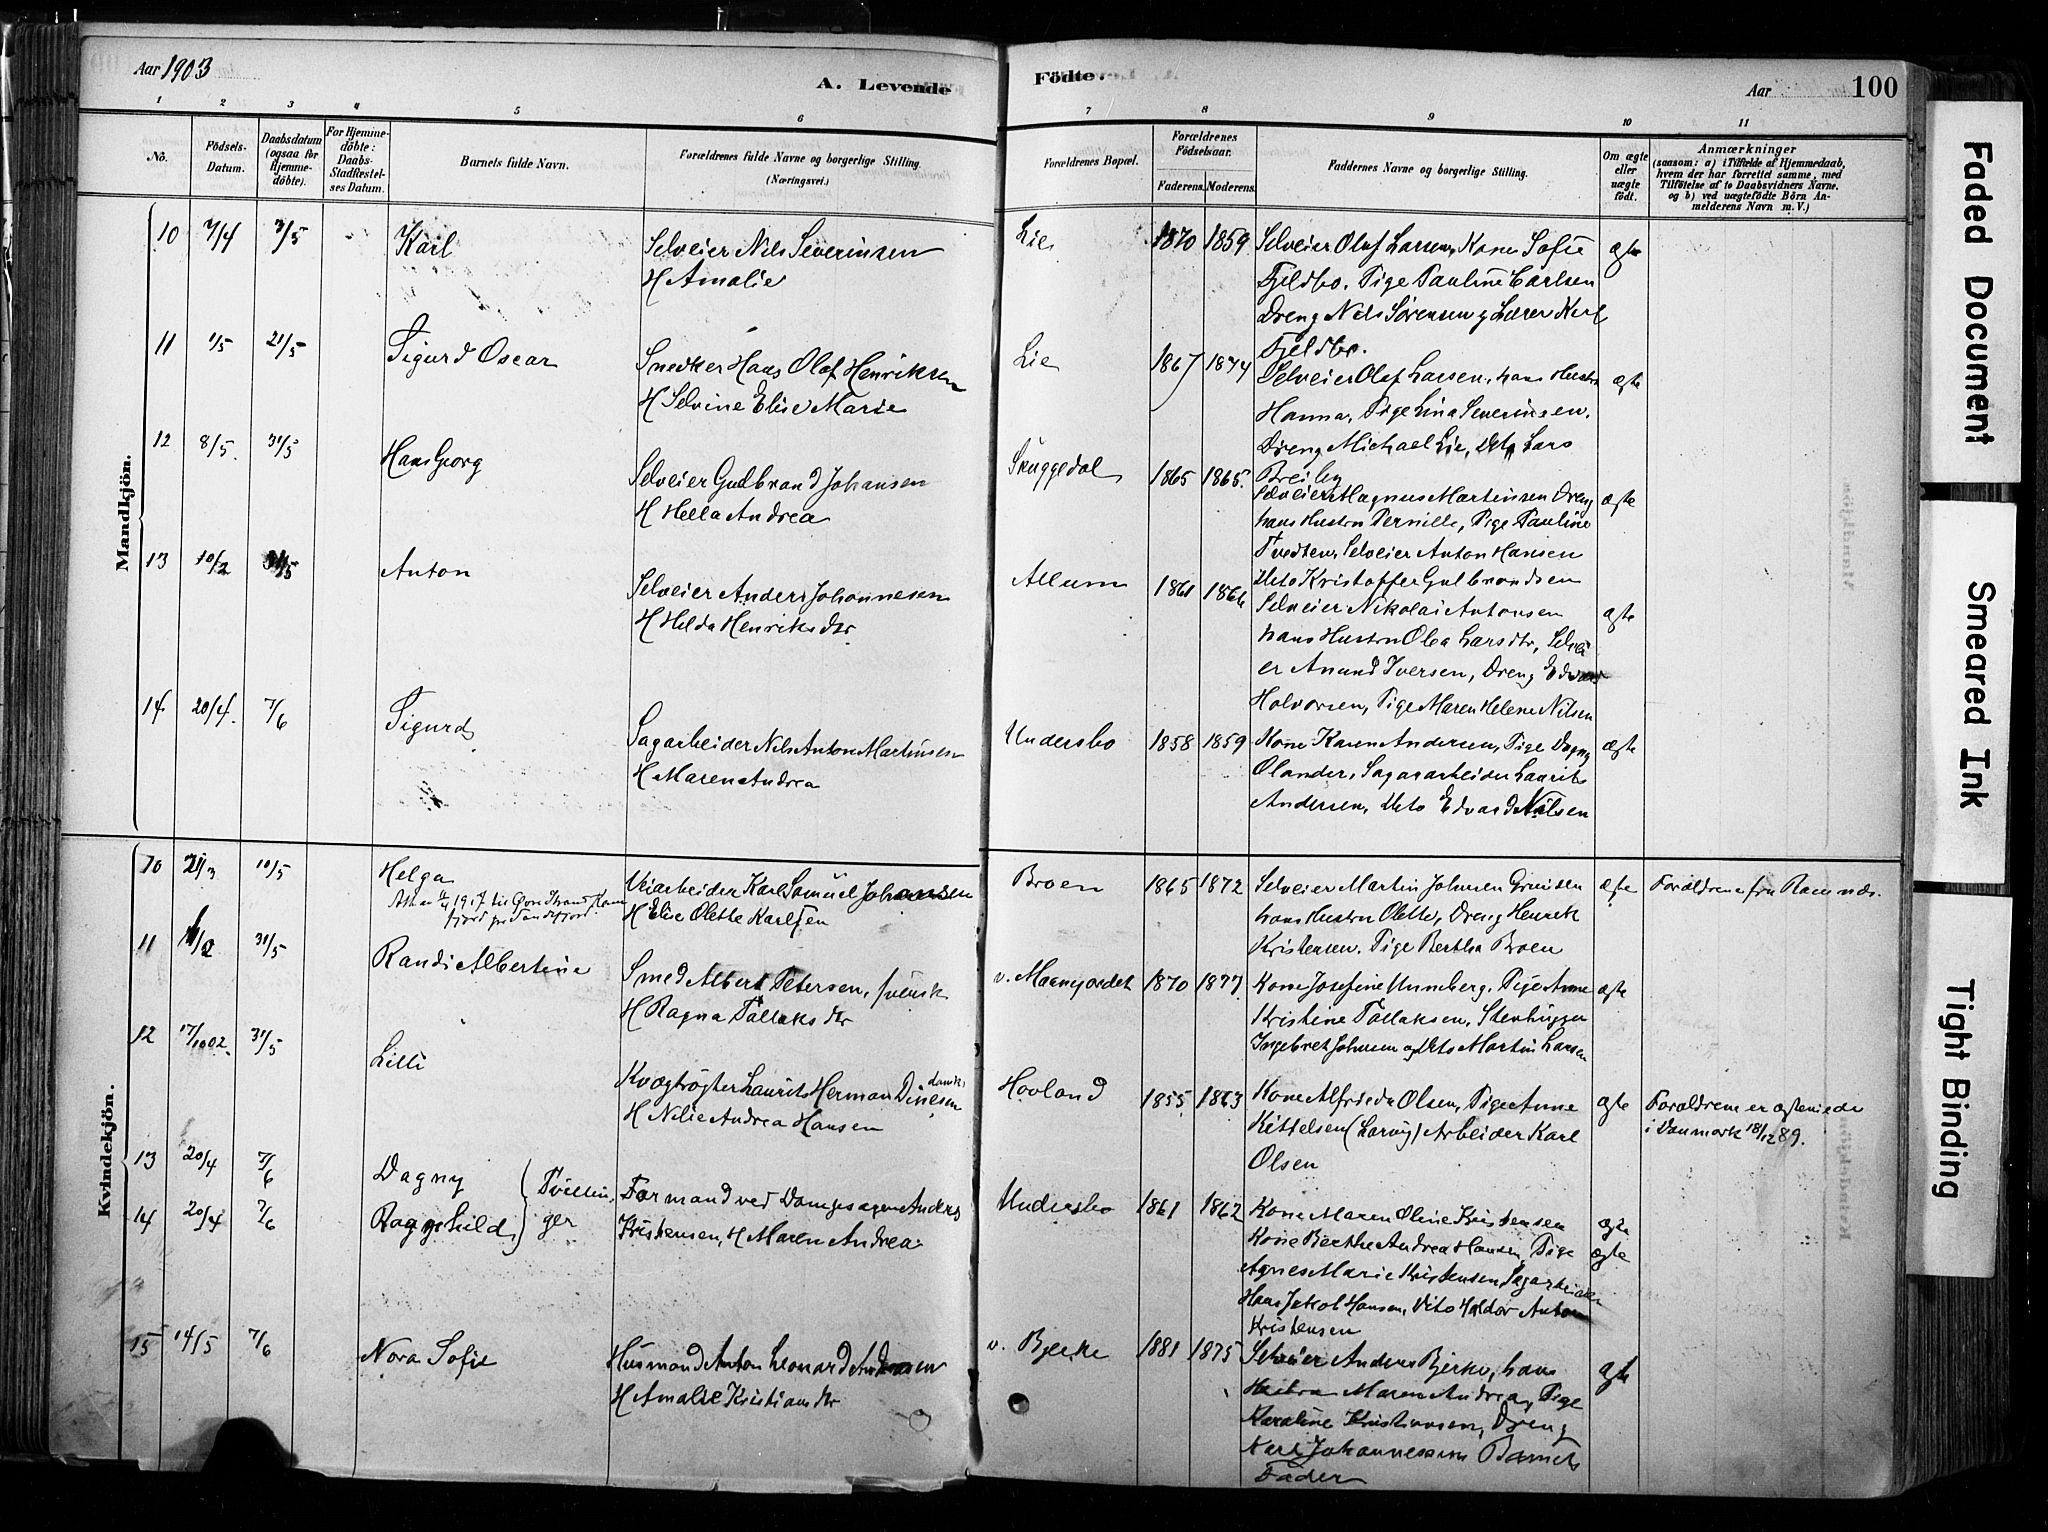 Aar 1903
A. Levende
Födte.
Aar
100
1 2 3 4 5 6 7 8 9 10 11
No.
Födsels-Datum.
Daabsdatum (ogsaa for Hjemmedöbte).
For Hjemmedöbte: Daabs-Stadfæstelses Datum.
Barnets fulde Navn.
Forældrenes fulde Navne og borgerlige Stilling.
(Næringsvei.)
Forældrenes Bopæl.
Forældrenes Födselsaar.
Faderens. Moderens.
Faddernes Navne og borgerlige Stilling.
Om ægte eller uægte födt.
Anmærkninger
(saasom: a) i Tilfælde af Hjemmedaab,
hvem der har forrettet samme, med
Tilföielse af to Daabsvidners Navne.
og b) ved uægtefödte Börn An-
melderens Navn m. V.)
Mandkjön.
10 7/4 3/5 Karl
Selveier Nils Severinsen
H Amalie
Lie 1870 1859
Selveier Olaf Larsen, Kone Sofie
Fjeldbo. Pige Pauline Carlsen
Dreng Nils Sörensen og Lærer Karl
Fjeldbo.
ægte
11 1/5 21/5 Sigurd Oscar
Snedker Hans Olaf Henriksen
H Selvine Elise Marie
Lie 1867 1874
Selveier Olaf Larsen, hans Hustru
Hanna, Pige Lina Severinsen.
Dreng Michael Lie, Dto Lars
Breiby
ægte
12 8/5. 31/5 Hans Georg
Selveier Gulbrand Johansen
H Hella Andrea
Skuggedal 1865 1865.
Selveier Magnus Martinsen Dreng
hans Hustru Pernille, Pige Pauline
Tvedten, Selveier Anton Hansen
Dto Kristoffer Gulbrandsen
ægte
13 10/2 31/5 Anton
Selveier Anders Johannesen
H Hilda Henriksdtr
Allum 1861 1864
Selveier Nikolai Antonsen
hans Hustru Olea Larsdtr, Selvei
er Anund Iversen, Dreng Edvard
Halvorsen, Pige Maren Helene Nilsen
ægte
14 20/4. 7/6 Sigurd
Sagarbeider Nils Anton Martinsen
H Maren Andrea
Undersbo 1858 1859
Kone Karen Andersen, Pige Dagny
Olander, Sagarbeider Laurits
Andersen, Dto Edvard Nilsen
ægte
Kvindekjön.
10 21/3 10/5 Helga
1917 til Sandefjord
Veiarbeider Karl Samuel Johansen
H Elise Olette Karlsen
Broen 1865 1872
Selveier Martin Johnsen
hans Hustru Olette, Dreng Henrik
Kristensen. Pige Bertha Broen
ægte
Forældrene fra Ramnæs.
11 31/5 Randi Albertine
Smed Albert Petersen, svensk
H Ragna Tollaksdtr
v. Maanejordet 1870 1877
Kone Josefine Unneberg. Pige Anne
Kristine Tollaksen, Stenhugger
Ingebret Johnsen og Dto Martin Larsen
ægte
12 17/10 02. 31/5 Lilli
Kvægrögter Laurits Herman Dinesen dansk
H Nelie Andrea Hansen
Hovland 1855 1863
Kone Alfrieda Olsen, Pige Anne
Kittelsen (Larvig) Arbeider Karl
Olsen
ægte
Forældrene er ægteviede
i Danmark 18/12 89.
13 20/4 7/6 Dagny
14 20/4 7/6 Ragnhild
Tvillin
ger
Formand ved Dampsagen Anders
Kristensen, H Maren Andrea
Undersbo 1861 1862
Kone Maren Oline Kristensen
Kone Berthe Andrea Hansen, Pige
Agnes Marie Kristensen, Sagarbeider
Hans Jakob Hansen, Dito Haldor Anton
Kristensen
ægte
ægte
15 14/5 7/6 Nora Sofie
Husmand Anton Leonard Andersen
H Amalie Kristiansdtr
v. Bjerke 1881 1875
Selveier Anders Bjerke, hans
Hustru Maren Andrea, Pige
Karoline Kristiansen, Dreng
Karl Johannessen Barnets
Fader
ægte
Faded Document
Smeared Ink
Tight Binding